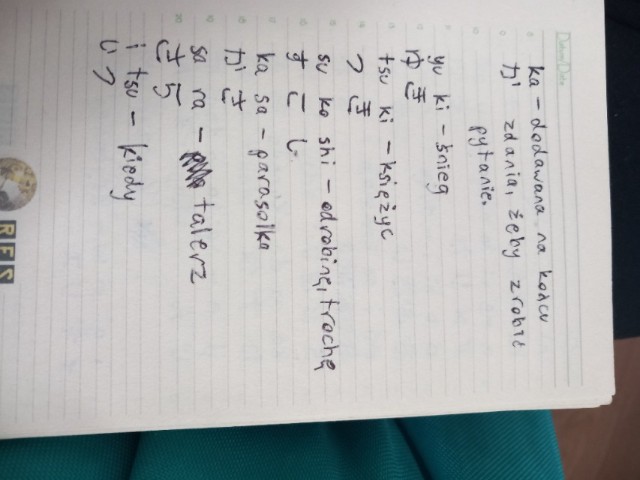 Datum/Date
ka - dodawana na końcu
か zdania, żeby zrobić
pytanie.
yu ki - śnieg
ゆき
tsu ki - księżyc
つき
su ko shi - odrobinę, trochę
すこし
ka sa - parasolka
かさ
sa ra - talerz
さら
i tsu - kiedy
いつ
RES